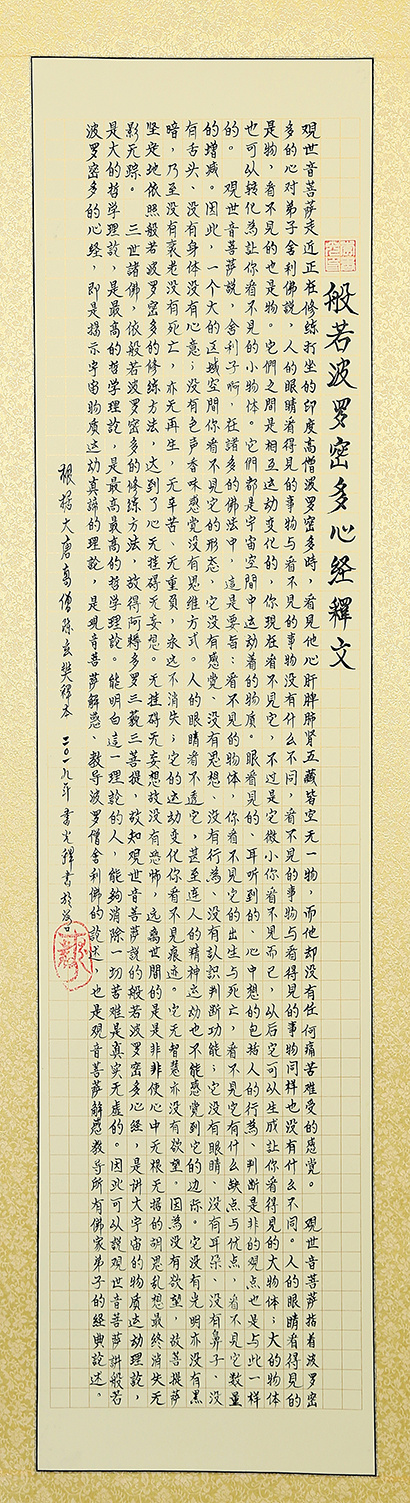 般若波罗密多心经釋文
观世音菩萨走近正在修练打坐的印度高僧波罗密多時，看见他心肝脾肺肾五藏皆空无一物，而他却没有任何痛苦难受的感觉。 观世音菩萨指着波罗密
多的心对弟子舍利佛説，人的眼睛看得见的事物与看不见的事物没有什么不同，看不见的事物与看得见的事物同样也没有什么不同。人的眼睛看得见的
是物，看不见的也是物。它們之間是相互运动变化的，你現在看不见它，不过是它微小你看不见而已，以后它可以生成让你看得见的大物体；大的物体
也可以轉化為让你看不见的小物体。它們都是宇宙空間中运动着的物质。眼看见的、耳听到的、心中想的包括人的行為、判断是非的观点也是与此一样
的。 观世音菩萨説，舍利子啊，在諸多的佛法中，這是要旨：看不见的物体，你看不见它的出生与死亡，看不见它有什么缺点与优点，看不见它数量
的增减。因此，一个大的区域空間你看不见它的形态，它没有感觉、没有思想、没有行為、没有认識判断功能；它没有眼睛、没有耳朵、没有鼻子、没
有舌头、没有身体没有心意；没有色声香味感觉没有思维方式。人的眼睛看不透它，甚至连人的精神运动也不能感觉到它的边际。它没有光明亦没有黑
暗，乃至没有衰老没有死亡，亦无再生，无辛苦、无重負，永远不消失；它的运动变化你看不见痕迹。它无智慧亦没有欲望。因為没有欲望，故菩提萨
坚定地依照般若波罗密多的修练方法，达到了心无挂碍无妄想。无挂碍无妄想故没有恐怖，远离世間的是是非非使心中无根无据的胡思乱想最终消失无
影无踪。 三世諸佛，依般若波罗密多的修练方法，故得阿耨多罗三藐三菩提，故知观世音菩萨説的般若波罗密多心经，是讲大宇宙的物质运动理論，
是大的哲学理論，是最高的哲学理論，是最高最高的哲学理論。能明白這一理論的人，能夠消除一切苦难是真实无虚的。因此可以説观世音菩萨讲般若
波罗密多的心经，即是揭示宇宙物质运动真諦的理論，是观音菩萨解惑、教导波罗僧舍利佛的論述，也是观音菩萨解惑教导所有佛家弟子的经典論述。
根据大唐高僧陈玄奘釋本 二〇一九年 書